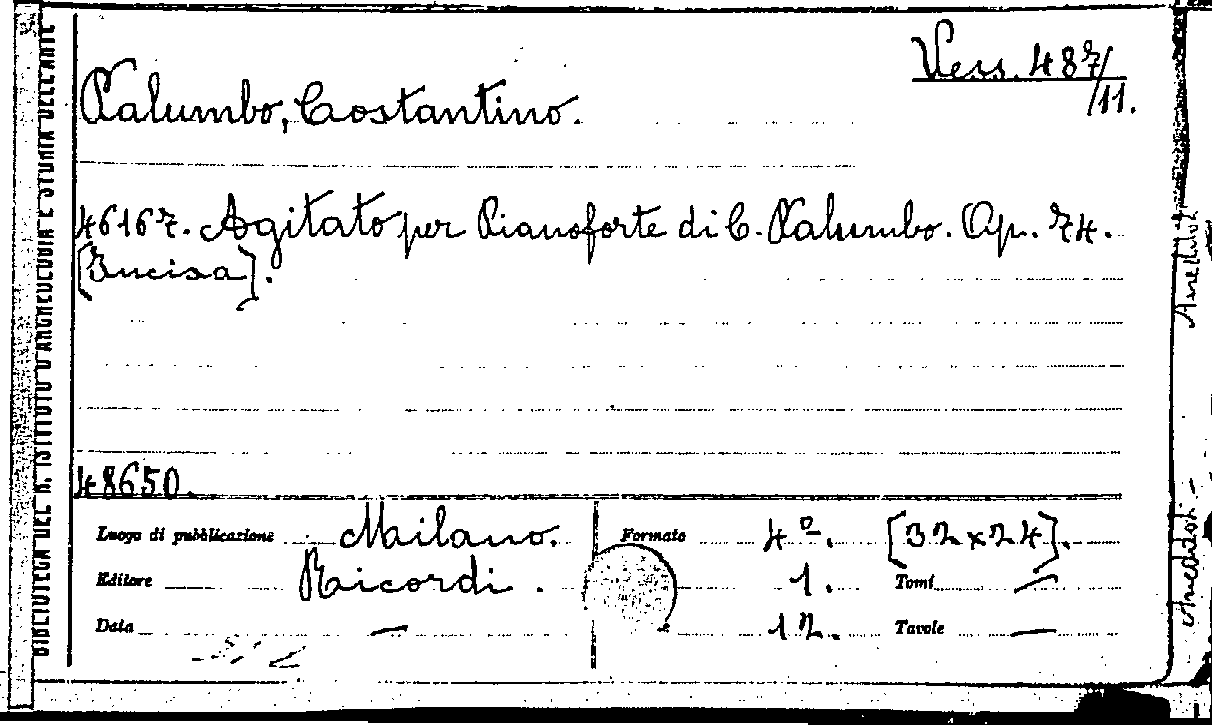 Vess. 487/
/11.
Palumbo, Costantino.
46167. Agitato per Pianoforte di C. Palumbo. Op. 74.
[Incisa].
48650.
Luogo di pubblicazione Milano. Formato 4º. [32x24].
Editore Ricordi. 1. Tomi —
Data — 12. Tavole —
BIBLIOTECA DEL R. ISTITUTO D'ARCHEOLOGIA E STORIA DELL'ARTE